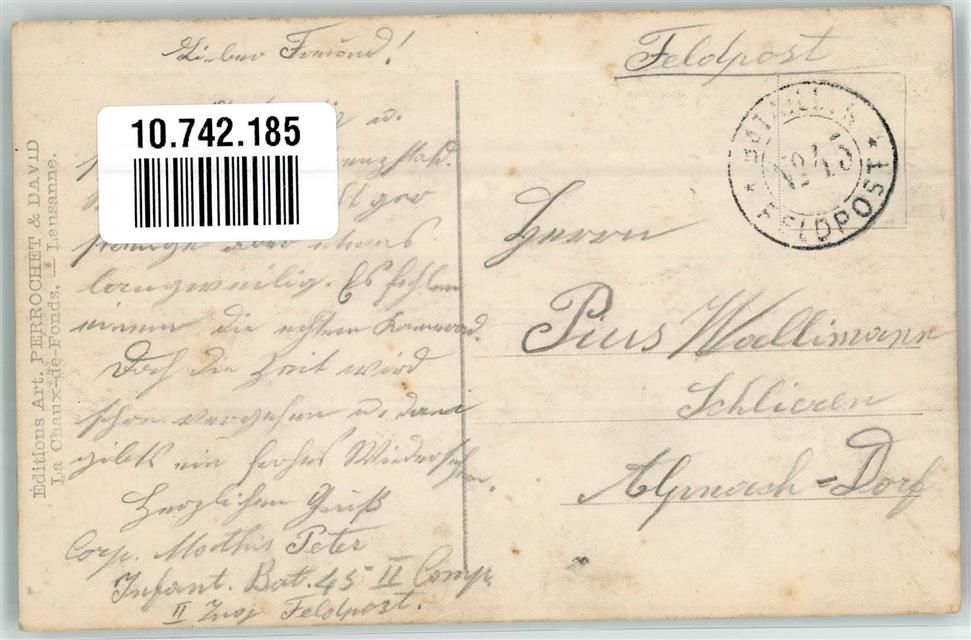 Lieber Freund!
Feldpost
BATAILLON
No 45
FELDPOST
10.742.185
u.
gar
aber etwas
langweilig. Es fehlen
einem die echten Kamerad.
Doch die Zeit wird
schon vergehen u. dann
gibts ein frohes Wiedersehen.
Herzlichen Gruß
Corp. Mathis Peter
Infant. Bat. 45 II Comp.
II Zug Feldpost.
Herrn
Pius Wallimann
Schlieren
Alpnach-Dorf
Editions Art. PERROCHET & DAVID
La Chaux-de-Fonds. — Lausanne.